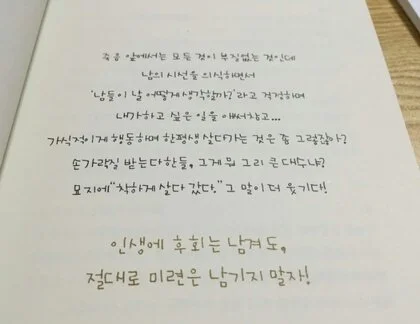 죽음 앞에서는 모든 것이 부질없는 것인데
남의 시선을 의식하면서
'남들이 날 어떻게 생각할까?'라고 걱정하며
내가 하고 싶은 일을 애써 참고...
가식적이게 행동하며 한평생 살다가는 것은 좀 그렇잖아?
손가락질 받는다 한들, 그게 뭐 그리 큰 대수냐?
묘지에 "착하게 살다 갔다." 그 말이 더 웃기다!
인생에 후회는 남겨도,
절대로 미련은 남기지 말자!